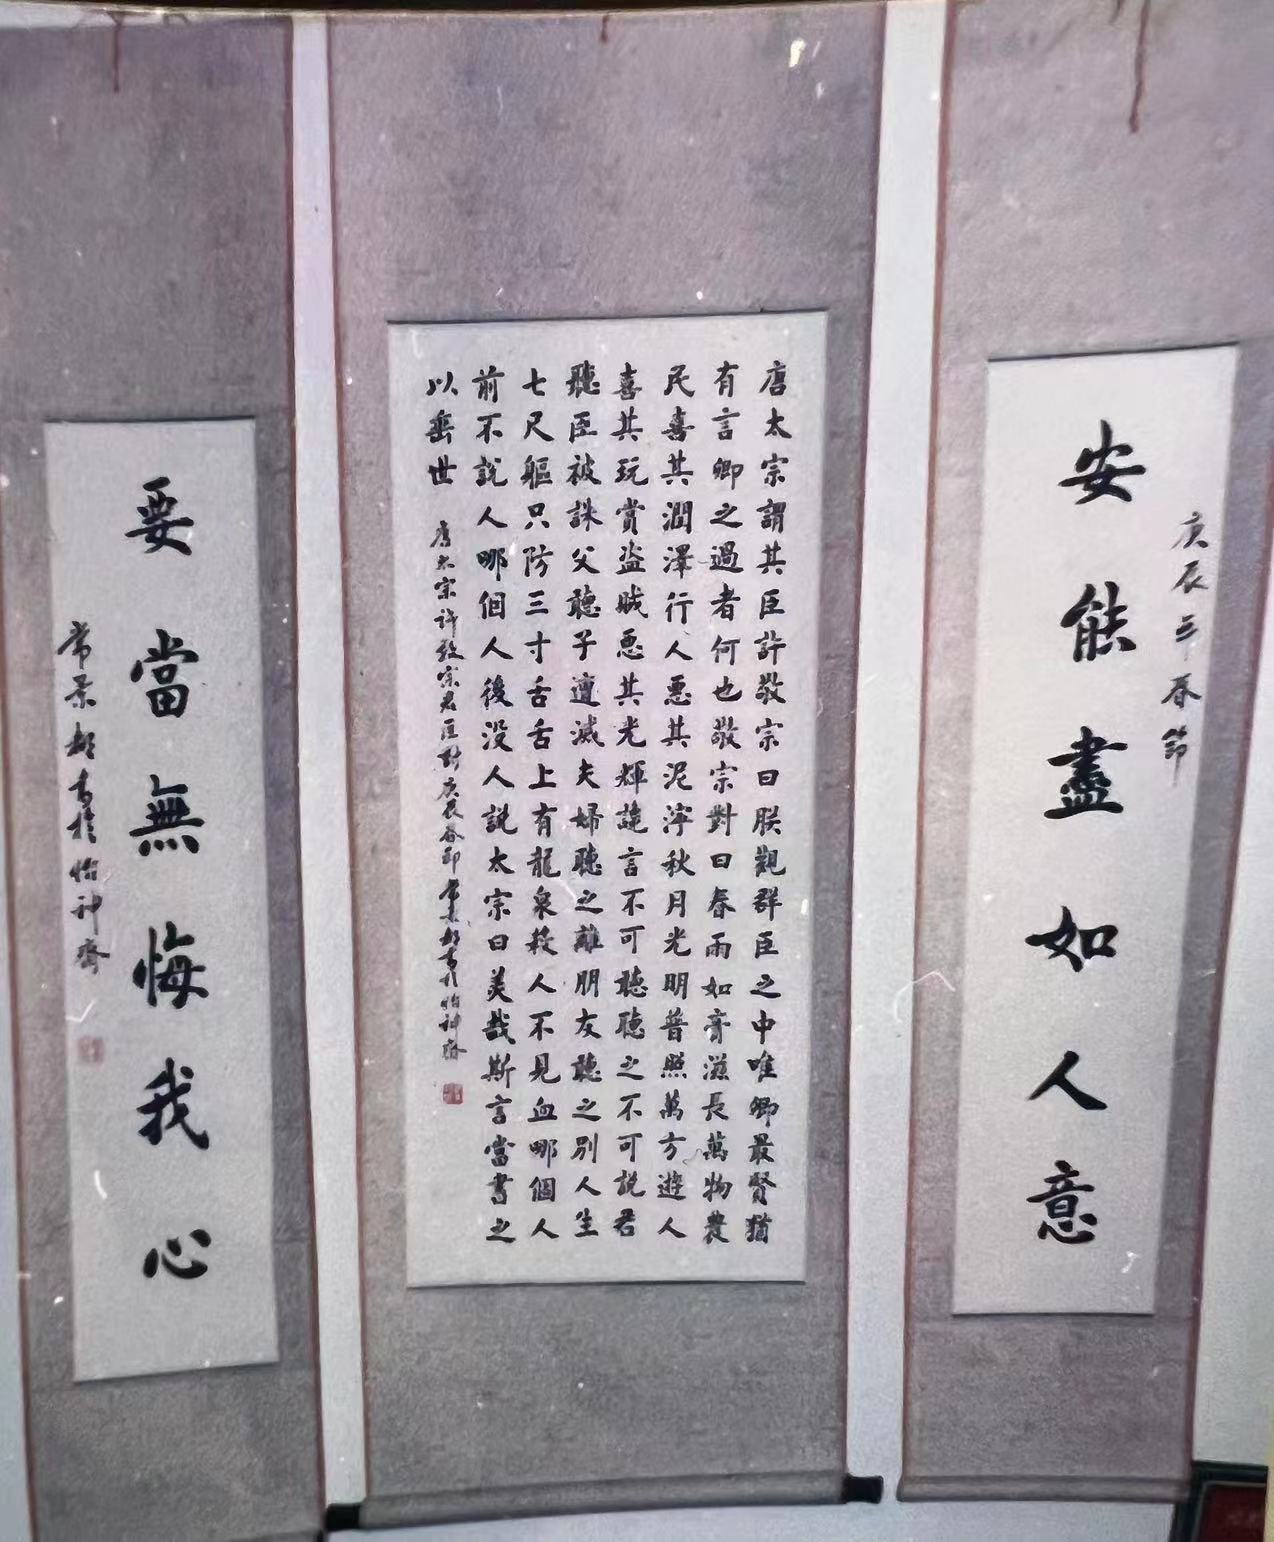 安能盡如人意
庚辰年春節
唐太宗謂其臣許敬宗曰朕觀群臣之中唯卿最賢猶
有言卿之過者何也敬宗對曰春雨如膏滋長萬物農
民喜其潤澤行人惡其泥濘秋月光明普照萬方遊人
喜其玩賞盜賊惡其光輝讒言不可聽聽之不可說君
聽臣被誅父聽子遭滅夫婦聽之離朋友聽之別人生
七尺軀只防三寸舌舌上有龍泉殺人不見血哪個人
前不說人哪個人後没人説太宗曰美哉斯言當書之
以垂世
唐太宗许敬宗君臣對庚辰春節常景都書於怡神齋
要當無悔我心
常景都書於怡神齋